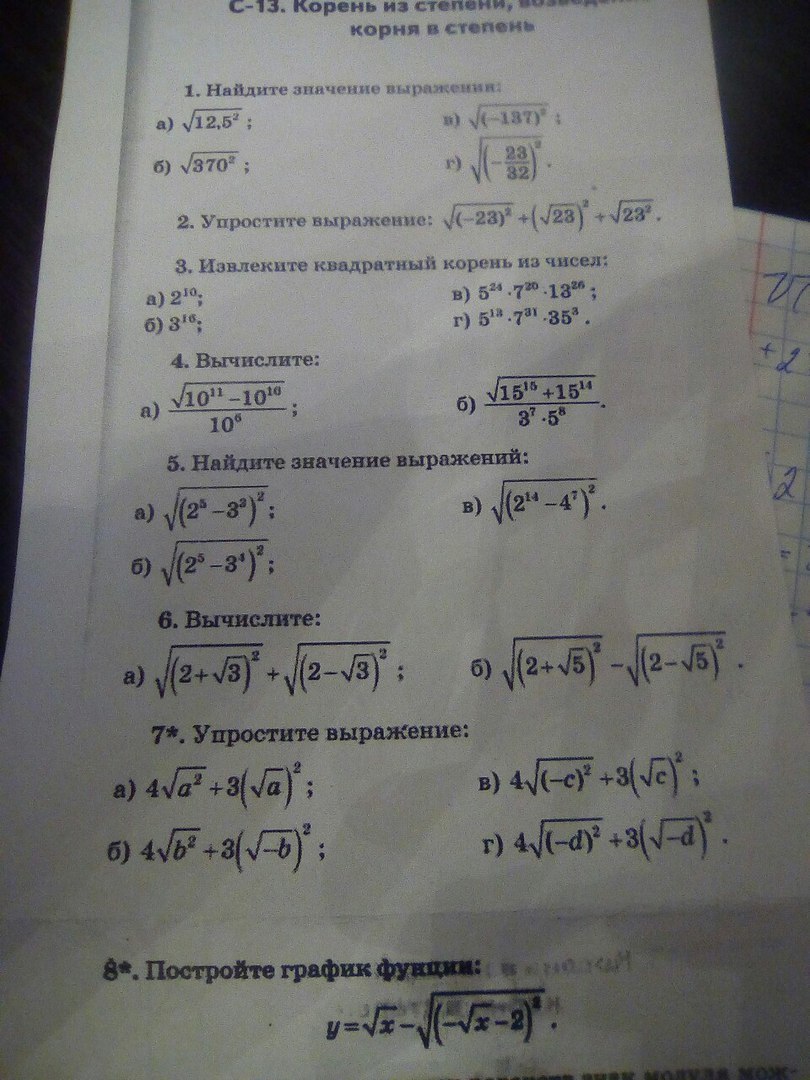 С-13. Корень из степени,
корня в степень
1. Найдите значение выражения:
а) √(12,5²) ; в) √((−137)²) ;
б) √(370²) ; г) √((−23/32)²) .
2. Упростите выражение: √((−23)²) + (√23)² + √(23²) .
3. Извлеките квадратный корень из чисел:
а) 2¹⁰; в) 5²⁴ · 7²⁰ · 13²⁶ ;
б) 3¹⁶; г) 5¹³ · 7³¹ · 35³ .
4. Вычислите:
а) √(10¹¹ − 10¹⁰) / 10⁶ ; б) √(15¹⁵ + 15¹⁴) / (3⁷ · 5⁸) .
5. Найдите значение выражений:
а) √((2⁵ − 3³)²) ; в) √((2¹⁴ − 4⁷)²) .
б) √((2⁵ − 3⁴)²) ;
6. Вычислите:
а) √((2 + √3)²) + √((2 − √3)²) ; б) √((2 + √5)²) − √((2 − √5)²) .
7*. Упростите выражение:
а) 4√(a²) + 3(√a)² ; в) 4√((−c)²) + 3(√c)² ;
б) 4√(b²) + 3(√(−b))² ; г) 4√((−d)²) + 3(√(−d))² .
8*. Постройте график фунции:
y = √x − √((−√x − 2)²) .
знак модуля мож-
+ 2
2